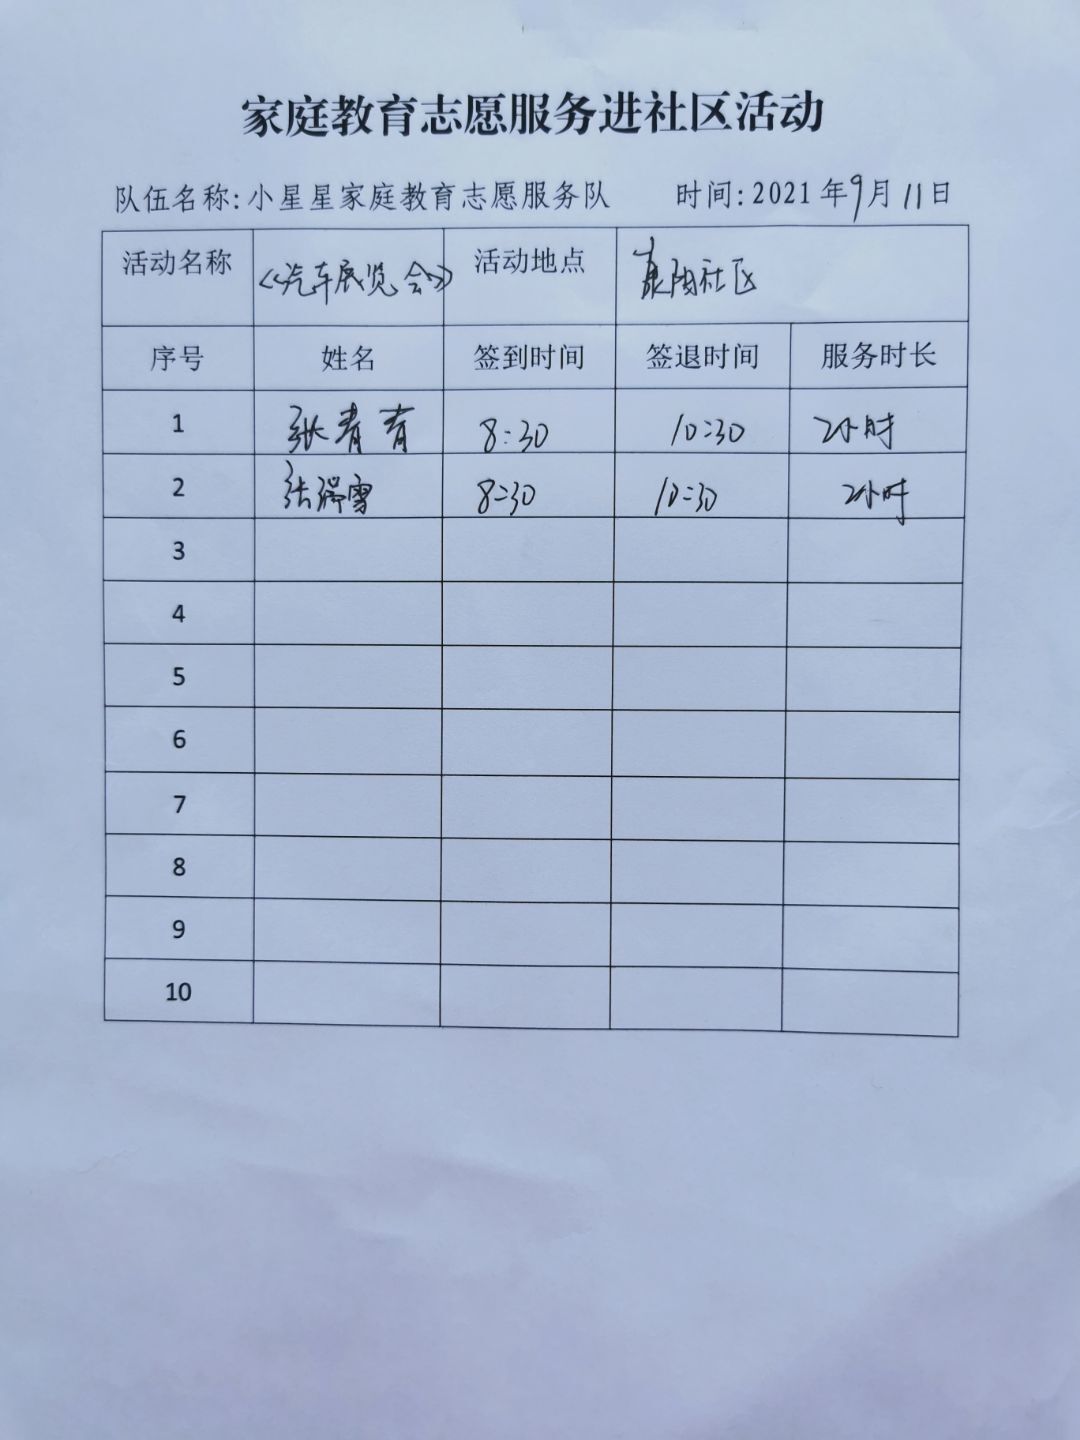 家庭教育志愿服务进社区活动
队伍名称:小星星家庭教育志愿服务队 时间:2021年9月11日
活动名称 《汽车展览会》 活动地点 康阳社区
序号 姓名 签到时间 签退时间 服务时长
1 张青青 8:30 10:30 2小时
2 张瑞雪 8:30 10:30 2小时
3
4
5
6
7
8
9
10